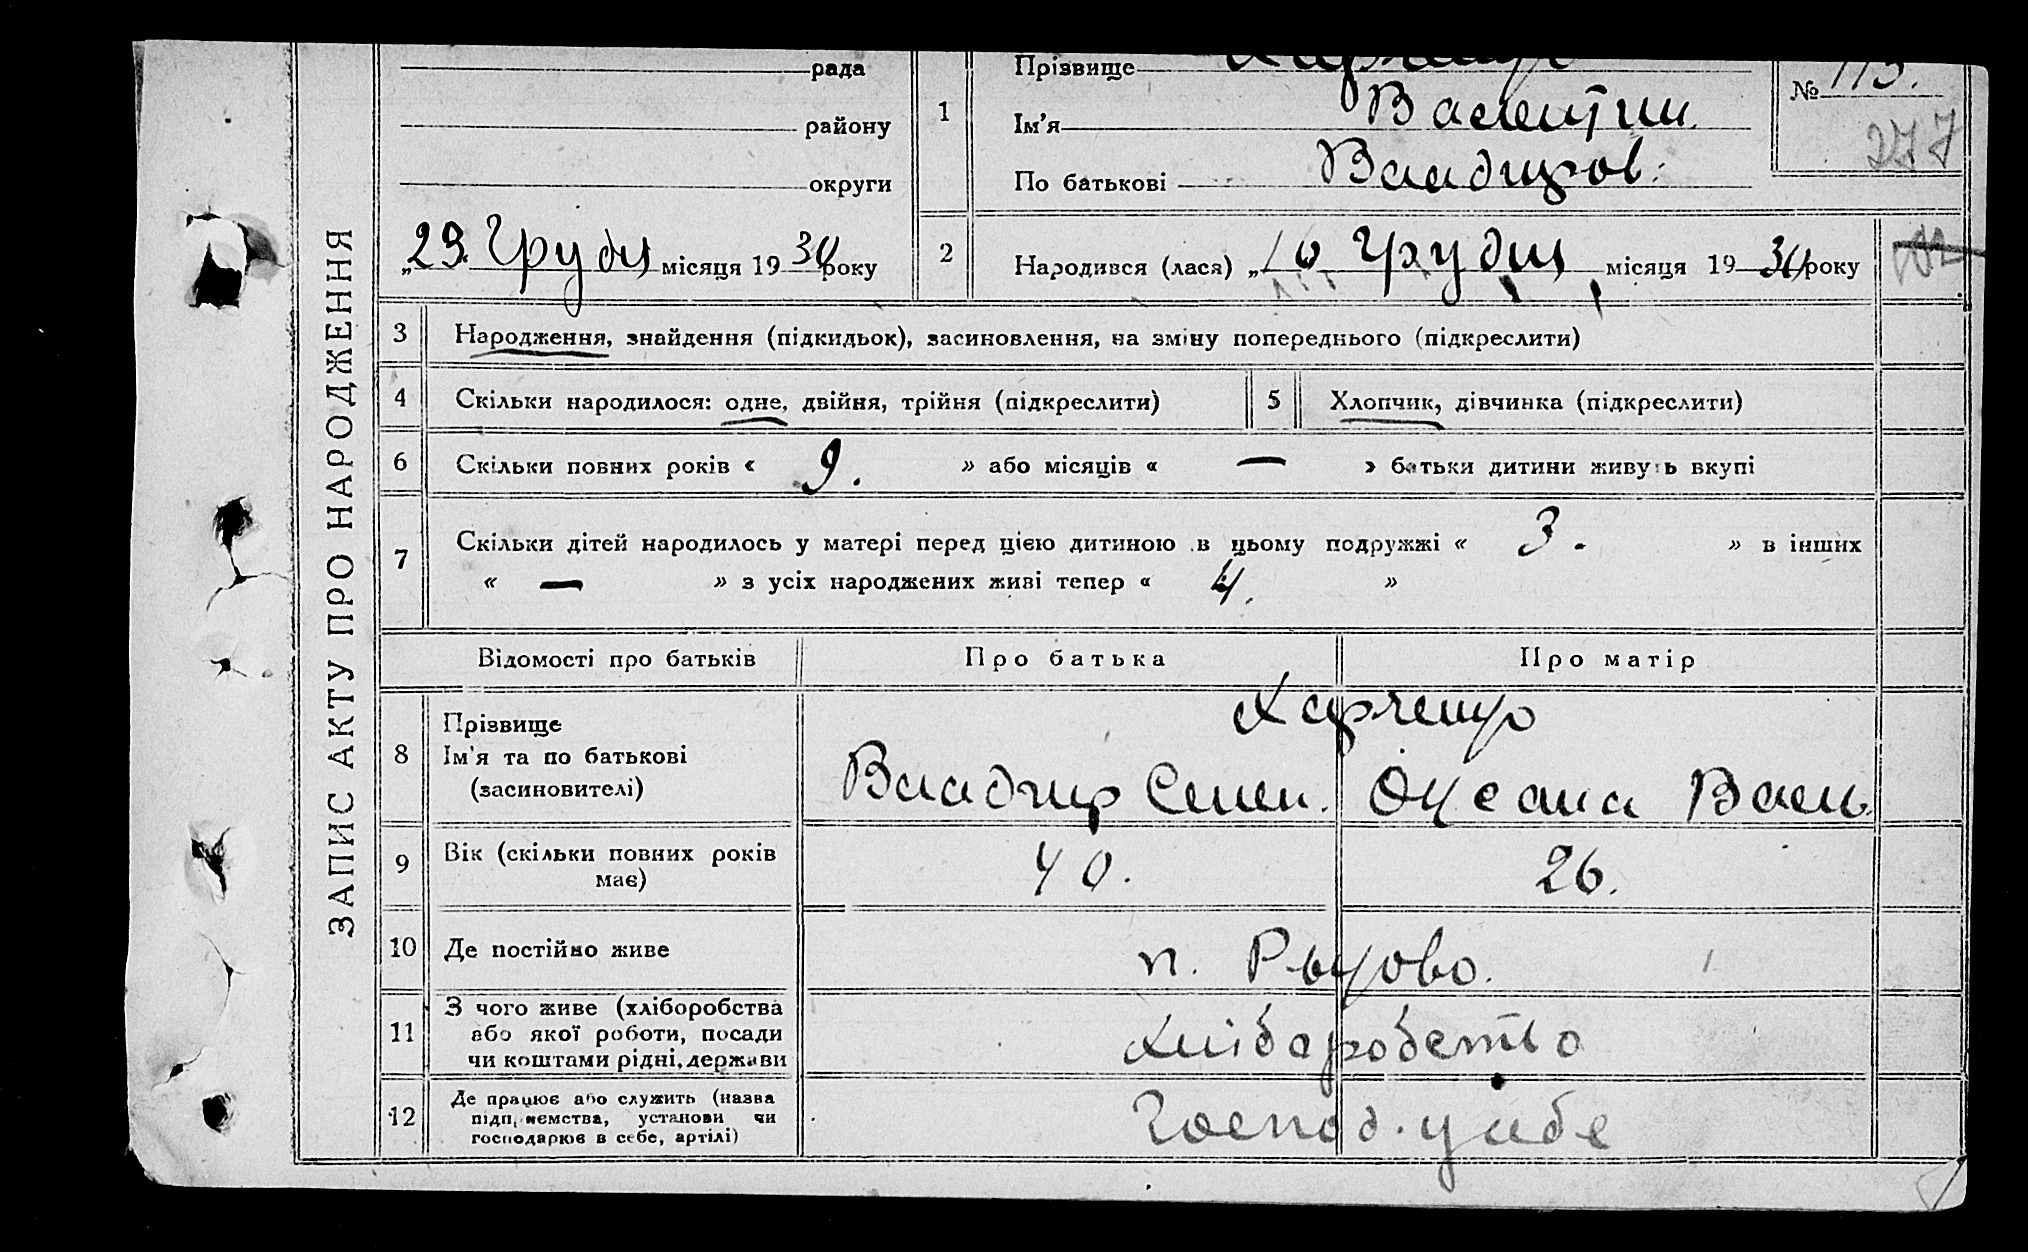 ЗАПИС АКТУ ПРО НАРОДЖЕННЯ
рада
району
округи
„23. Грудн місяця 1930 року
1
Прізвище
Ім'я Валентин.
По батькові Владимров.
№ 113.
277
2
Народився (лася) „10 Грудн місяця 1930 року
3 Народження, знайдення (підкидьок), засиновлення, на зміну попереднього (підкреслити)
4 Скільки народилося: одне, двійня, трійня (підкреслити)
5 Хлопчик, дівчинка (підкреслити)
6 Скільки повних років « 9. » або місяців « — » батьки дитини живуть вкупі
7 Скільки дітей народилось у матері перед цією дитиною в цьому подружжі « 3. » в інших
« — » з усіх народжених живі тепер « 4. »
Відомості про батьків Про батька Про матір
8 Прізвище
Ім'я та по батькові
(засиновителі)
Владимр Семен. Оксана Васил.
9 Вік (скільки повних років має) 40. 26.
10 Де постійно живе
11 З чого живе (хліборобства
або якої роботи, посади
чи коштами рідні, держави
Хліборобство
12 Де працює або служить (назва
підприємства, установи чи
господарює в себе, артілі)
Господ. у себе